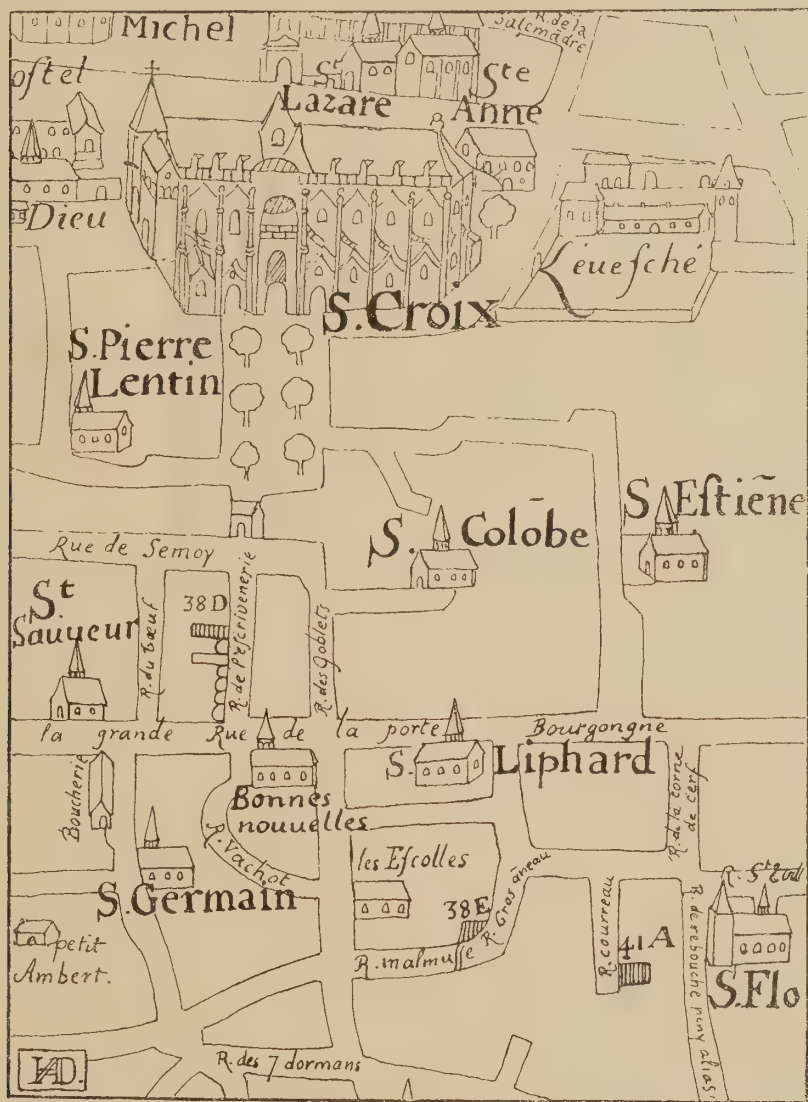 Michel
R. de la
Salemadre
St
Lazare
Ste
Anne
oſtel
Dieu
éueſché
S. Croix
S. Pierre
Lentin
S. Eſtiēne
S. Colōbe
Rue de Semoy
St
Sauueur
R. du bœuf
38 D
R. de l'eſcrivenerie
R. des Goblets
la grande Rue de la porte Bourgongne
S. Liphard
Boucherie
Bonnes
nouuelles
R. Vachot
R. de la corne
de cerf
les Eſcolles
S. Germain
38 E
R. Gros āneau
R. malmuſſe
R. courreau
41 A
R. de rebouche peny alias
R. Ste
S. Flo
petit
Ambert.
R. des 7 dormans